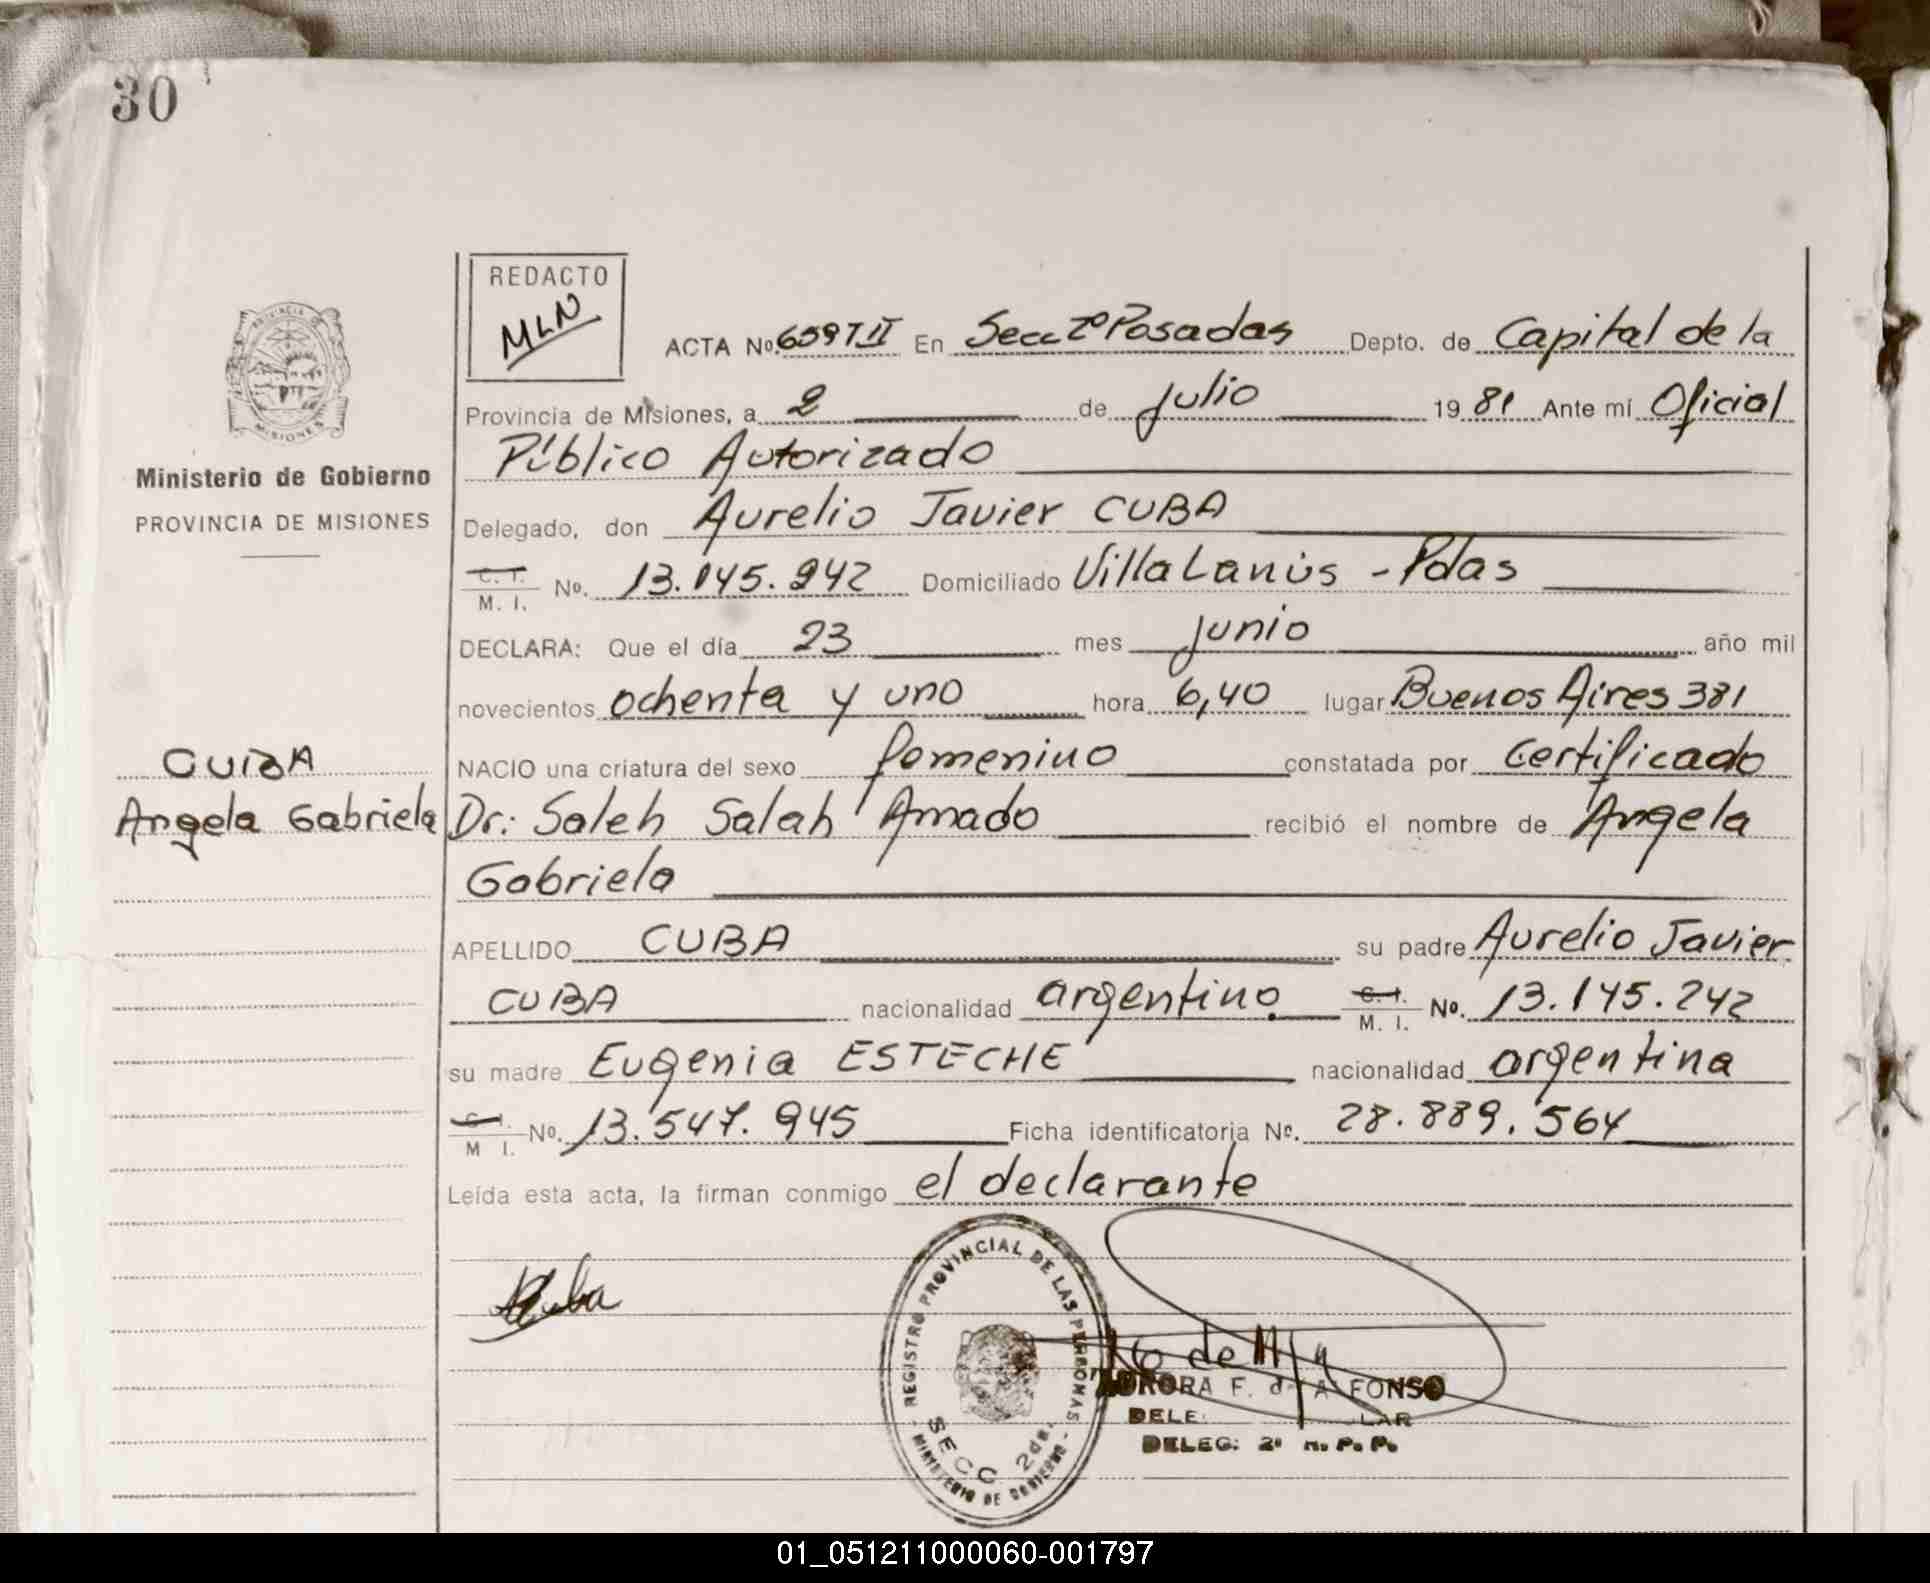 30
REDACTO
MLN
ACTA No. 659 T II En Secc 2º Posadas Depto. de Capital de la
PROVINCIA DE
MISIONES
Provincia de Misiones, a 2 de Julio 1981 Ante mí Oficial
Ministerio de Gobierno
Público Autorizado
PROVINCIA DE MISIONES
Delegado, don Aurelio Javier CUBA
C. I.
M. I. No. 13.145.242 Domiciliado Villa Lanús - Pdas
DECLARA: Que el día 23 mes junio año mil
novecientos ochenta y uno hora 6,40 lugar Buenos Aires 381
CUBA
NACIO una criatura del sexo femenino constatada por Certificado
Angela Gabriela
Dr: Saleh Salah Amado recibió el nombre de Angela
Gabriela
APELLIDO CUBA su padre Aurelio Javier
CUBA nacionalidad argentino C. I.
M. I. No. 13.145.242
su madre Eugenia ESTECHE nacionalidad argentina
C. I.
M I. No. 13.547.945 Ficha identificatoria No. 28.889.564
Leída esta acta, la firman conmigo el declarante
REGISTRO PROVINCIAL DE LAS PERSONAS
SECC 2da.
MINISTERIO DE GOBIERNO
AURORA F. de ALFONSO
DELEG: 2ª R. P. P.
01_051211000060-001797